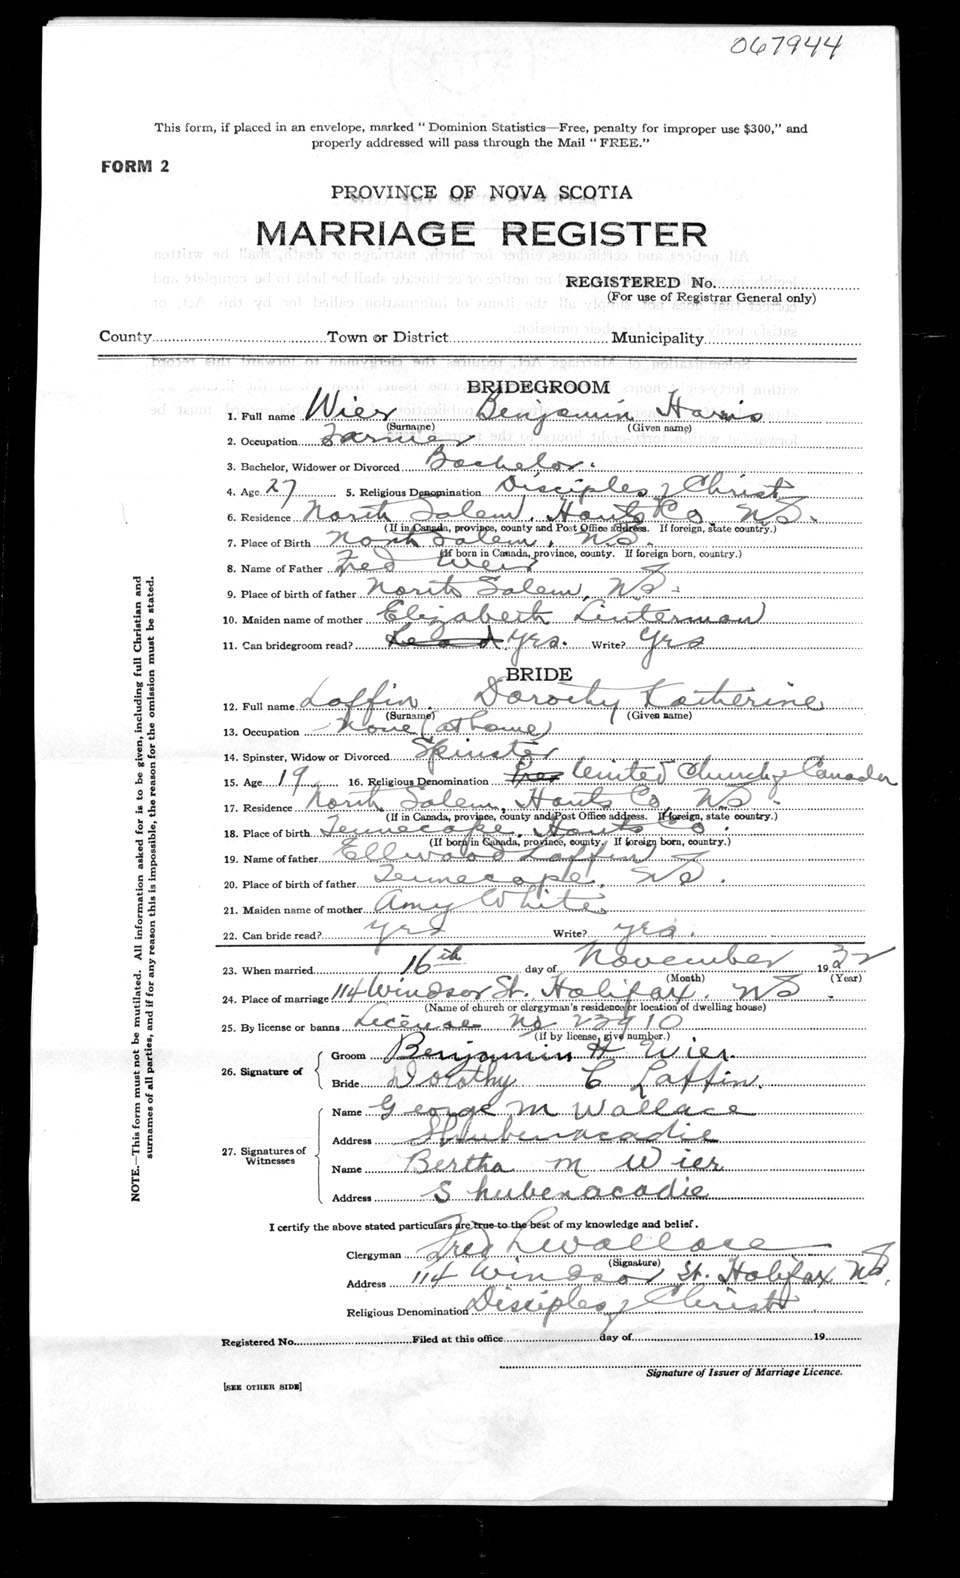 067944
This form, if placed in an envelope, marked "Dominion Statistics—Free, penalty for improper use $300," and
properly addressed will pass through the Mail "FREE."
FORM 2
PROVINCE OF NOVA SCOTIA
MARRIAGE REGISTER
REGISTERED No.
(For use of Registrar General only)
County Town or District Municipality
BRIDEGROOM
1. Full name Wier Benjamin Harris
(Surname) (Given name)
2. Occupation Farmer
3. Bachelor, Widower or Divorced Bachelor.
4. Age 27 5. Religious Denomination Disciples of Christ
6. Residence North Salem, Hants Co. NS.
(If in Canada, province, county and Post Office address. If foreign, state country.)
7. Place of Birth North Salem, NS.
(If born in Canada, province, county. If foreign born, country.)
8. Name of Father Fred Weir
9. Place of birth of father North Salem, NS.
10. Maiden name of mother Elizabeth Linterman
11. Can bridegroom read? Yes. Write? Yes
BRIDE
12. Full name Laffin, Dorothy Katherine
(Surname) (Given name)
13. Occupation None (at home)
14. Spinster, Widow or Divorced Spinster
15. Age 19 16. Religious Denomination United Church of Canada
17. Residence North Salem, Hants Co, NS.
(If in Canada, province, county and Post Office address. If foreign, state country.)
18. Place of birth Tennecape, Hants Co.
(If born in Canada, province, county. If foreign born, country.)
19. Name of father Ellwood Laffin
20. Place of birth of father Tennecape, NS.
21. Maiden name of mother Amy White
22. Can bride read? yes Write? yes.
23. When married 16th day of November 1932
(Month) (Year)
24. Place of marriage 114 Windsor St. Halifax, NS.
(Name of church or clergyman's residence or location of dwelling house)
25. By license or banns License No 23910
(If by license, give number.)
26. Signature of
Groom Benjamin H Wier.
Bride Dorothy C Laffin.
27. Signatures of Witnesses
Name George M Wallace
Address Shubenacadie
Name Bertha M Wier
Address Shubenacadie
I certify the above stated particulars are true to the best of my knowledge and belief.
Clergyman Fred L Wallace
(Signature)
Address 114 Windsor St. Halifax NS.
Religious Denomination Disciples of Christ
Registered No. Filed at this office day of 19
Signature of Issuer of Marriage Licence.
[SEE OTHER SIDE]
NOTE.—This form must not be mutilated. All information asked for is to be given, including full Christian and
surnames of all parties, and if for any reason this is impossible, the reason for the omission must be stated.